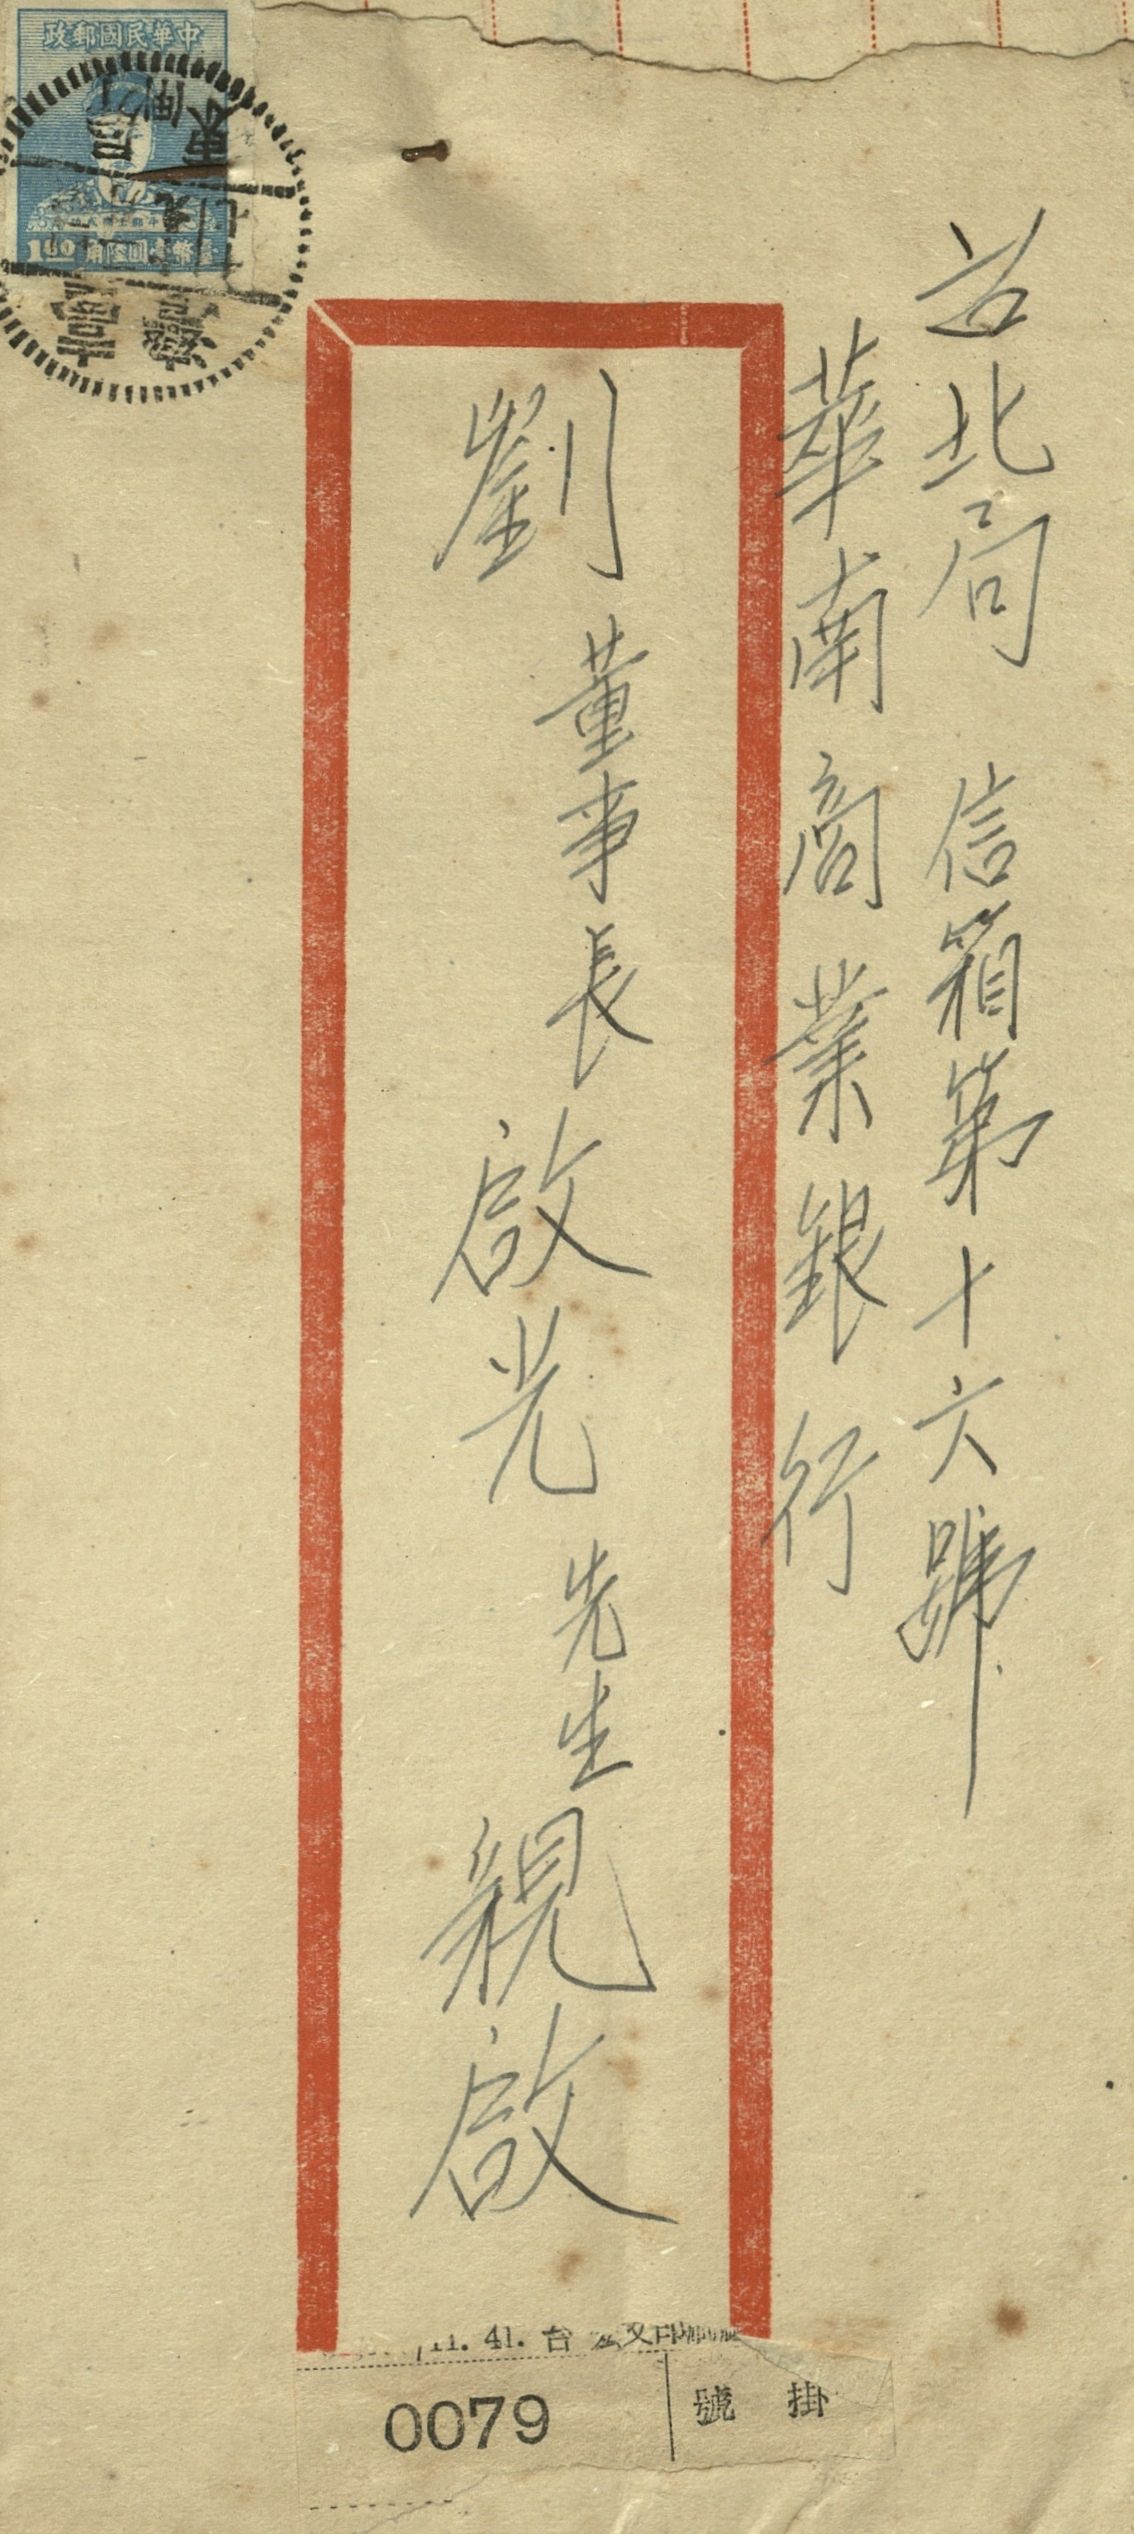 中華民國郵政
1.60
台北局 信箱第十六號
華南商業銀行
劉董事長啟光先生親啟
11. 41. 台
掛號
0079